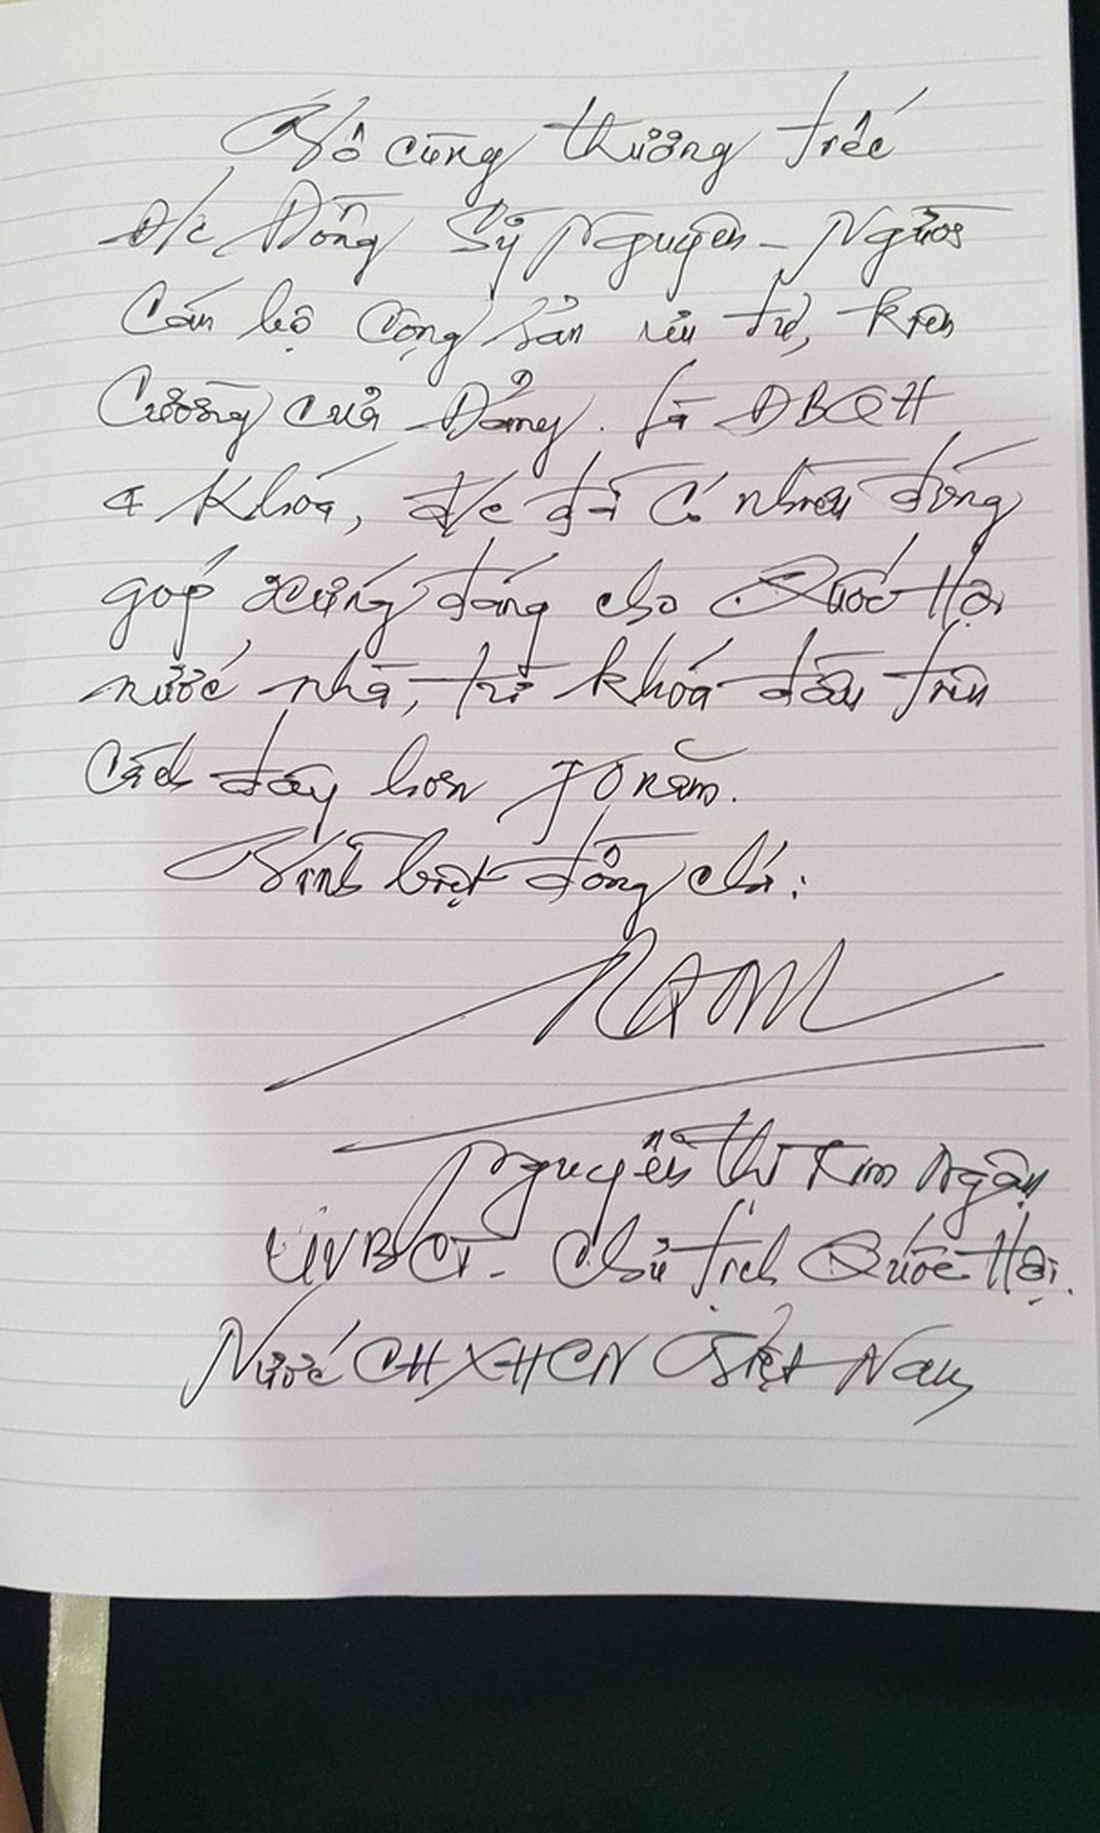 Vô cùng thương tiếc
Đ/c Đồng Sỹ Nguyên - Người
Cán bộ Cộng sản ưu tú, kiên
Cường của Đảng. Là ĐBQH
4 Khóa, đ/c đã có nhiều đóng
góp xứng đáng cho Quốc Hội
nước nhà, từ khóa đầu tiên
Cách đây hơn 70 năm.
Vĩnh biệt đồng chí!
Nguyễn Thị Kim Ngân
UVBCT - Chủ tịch Quốc Hội.
Nước CHXHCN Việt Nam